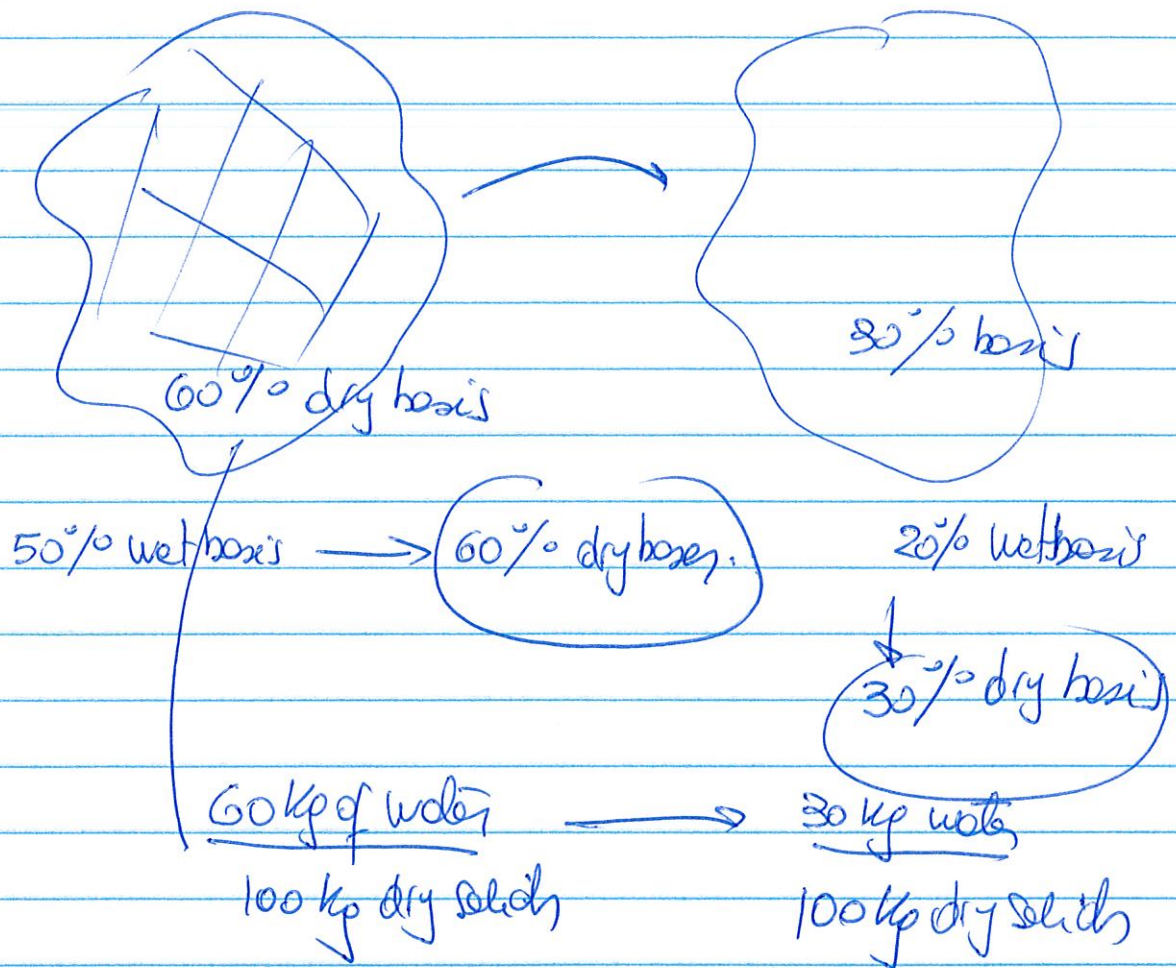 60% dry basis
30% basis
50% wet basis → 60% dry bases.
20% wet basis
↓
30% dry basis
60 Kg of water → 30 Kg water
100 Kg dry solids
100 Kg dry solids